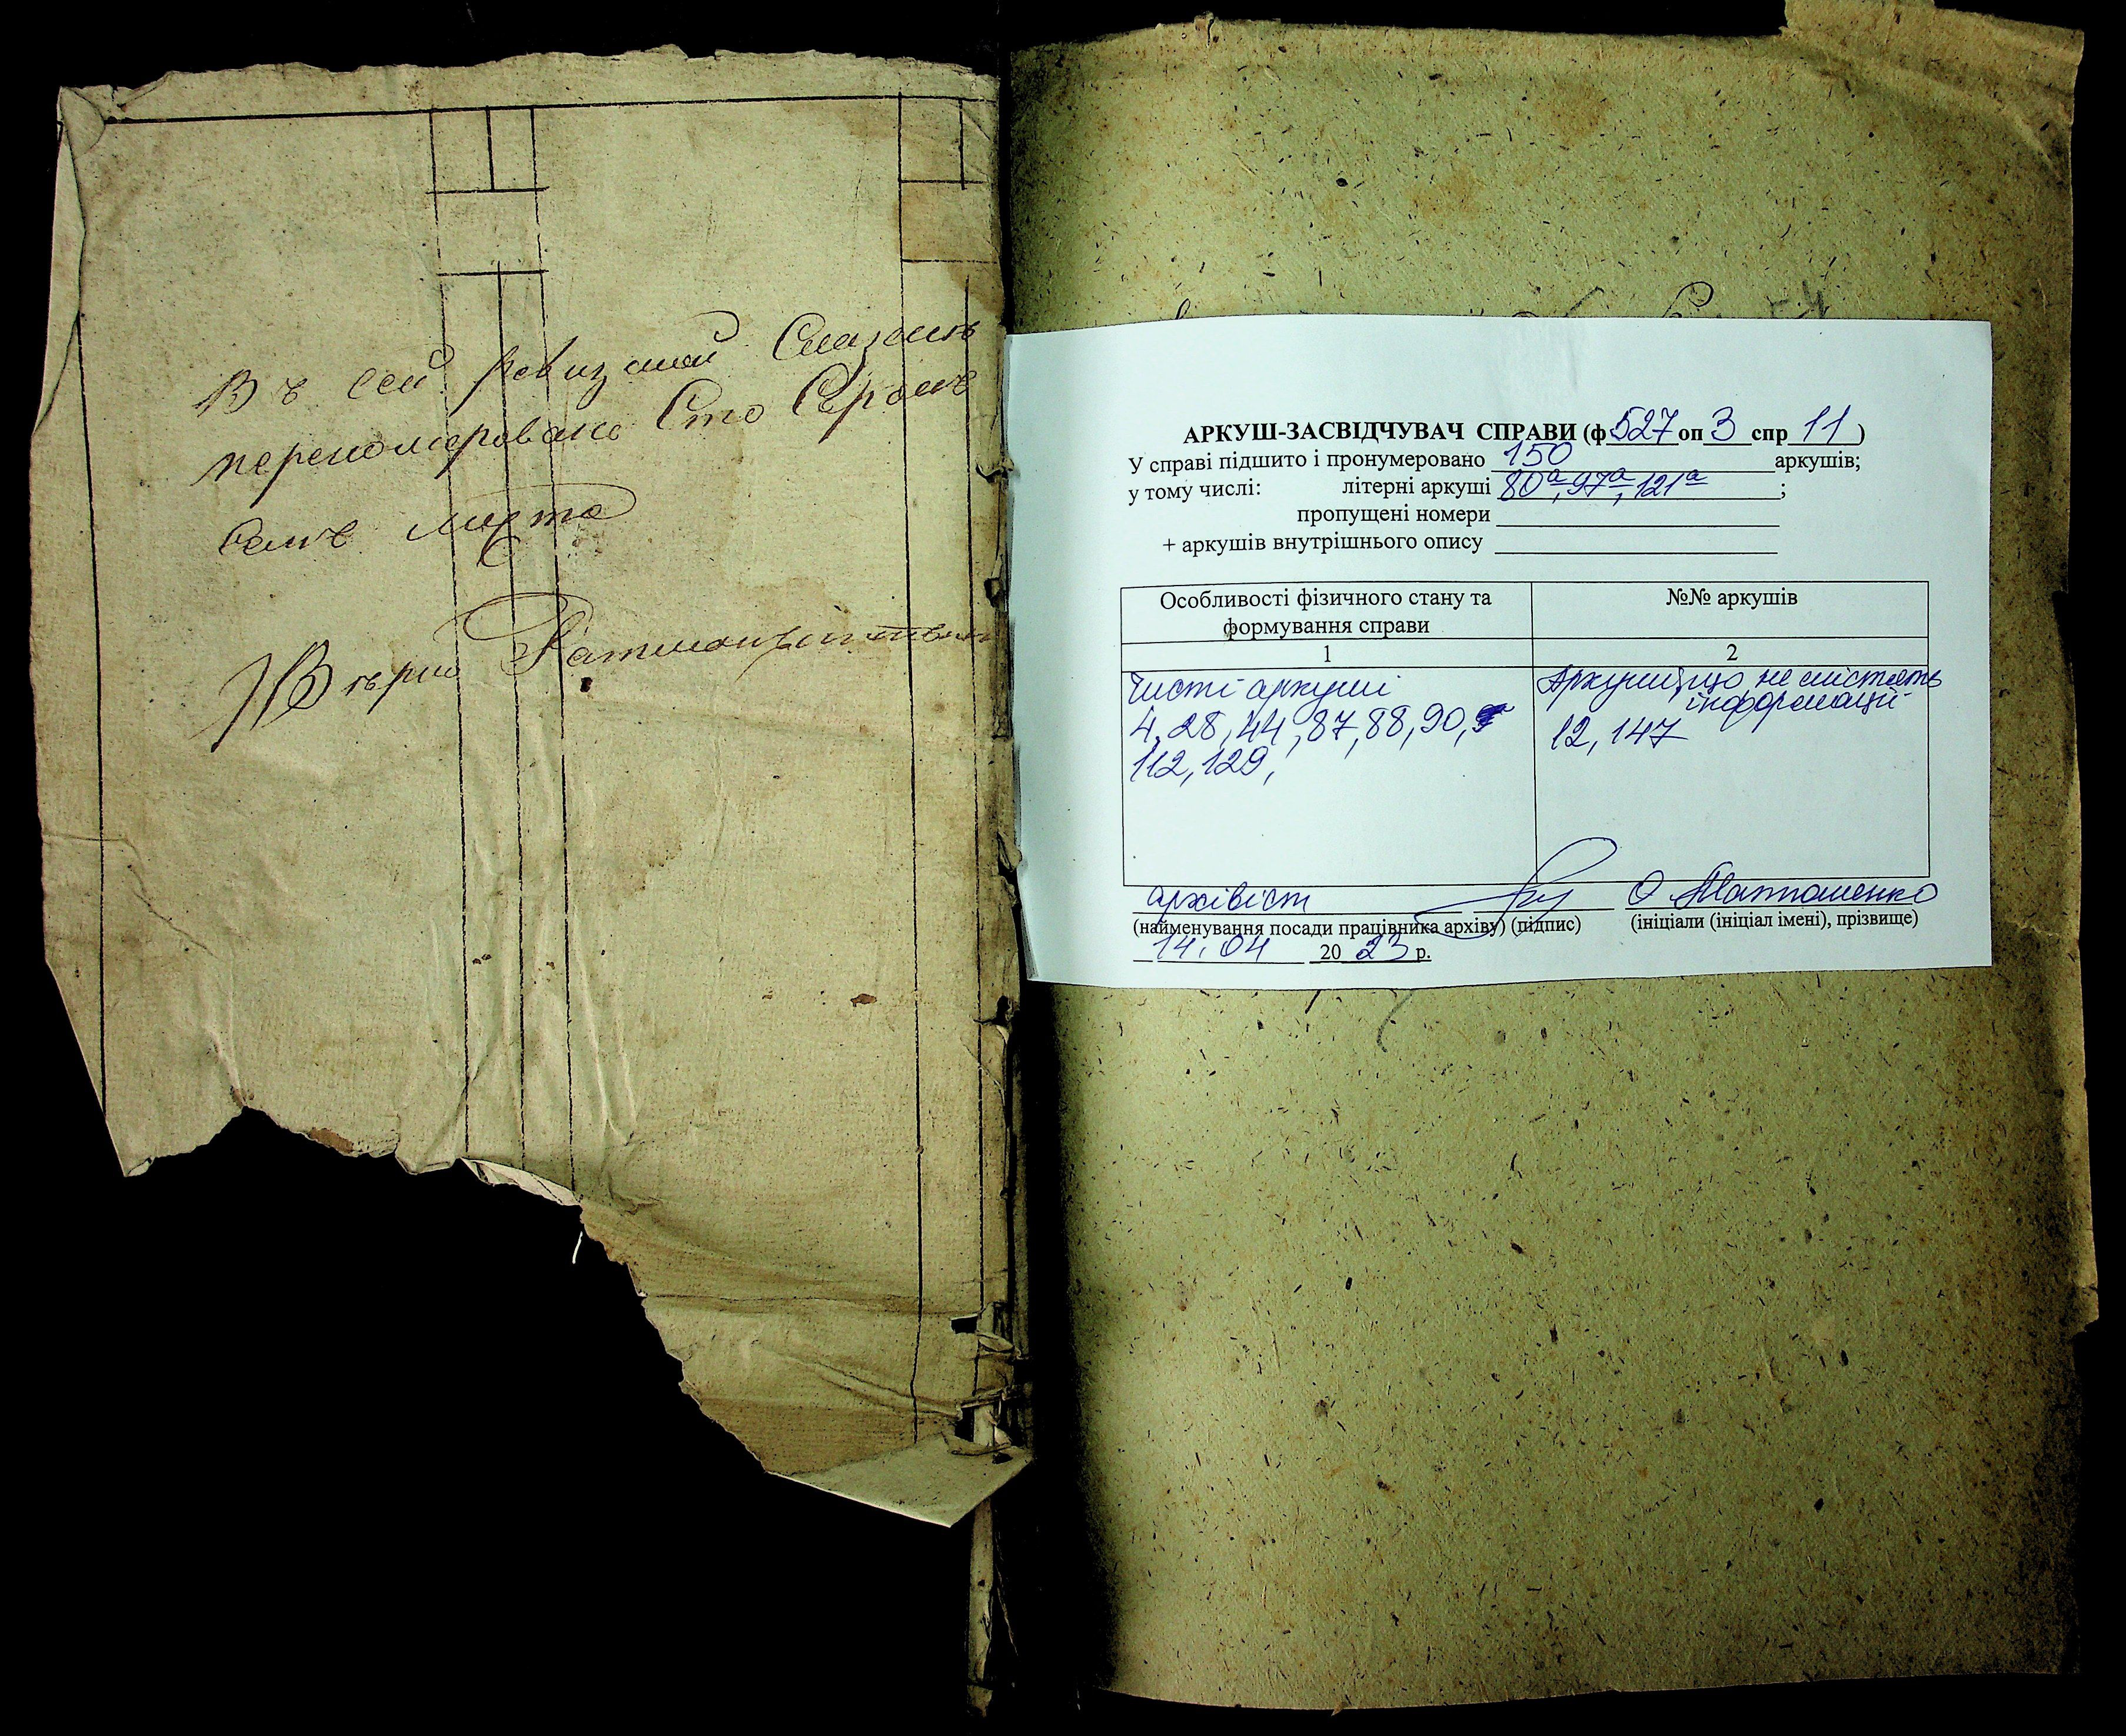 Въ сей Ревизской Сказки
переномеровано Сто Сорокъ
семь листа
Вѣрно
АРКУШ-ЗАСВІДЧУВАЧ СПРАВИ (ф 527 оп 3 спр 11 )
У справі підшито і пронумеровано 150 аркушів;
у тому числі: літерні аркуші 80а, 97а, 121а ;
пропущені номери
+ аркушів внутрішнього опису
Особливості фізичного стану та формування справи
№№ аркушів
1
2
Чисті аркуші
4, 28, 44, 87, 88, 90,
112, 129,
Аркуши, що не містять
інформації
12, 147
архівіст
О Матюшенко
(найменування посади працівника архіву) (підпис) (ініціали (ініціал імені), прізвище)
14.04 20 23 р.